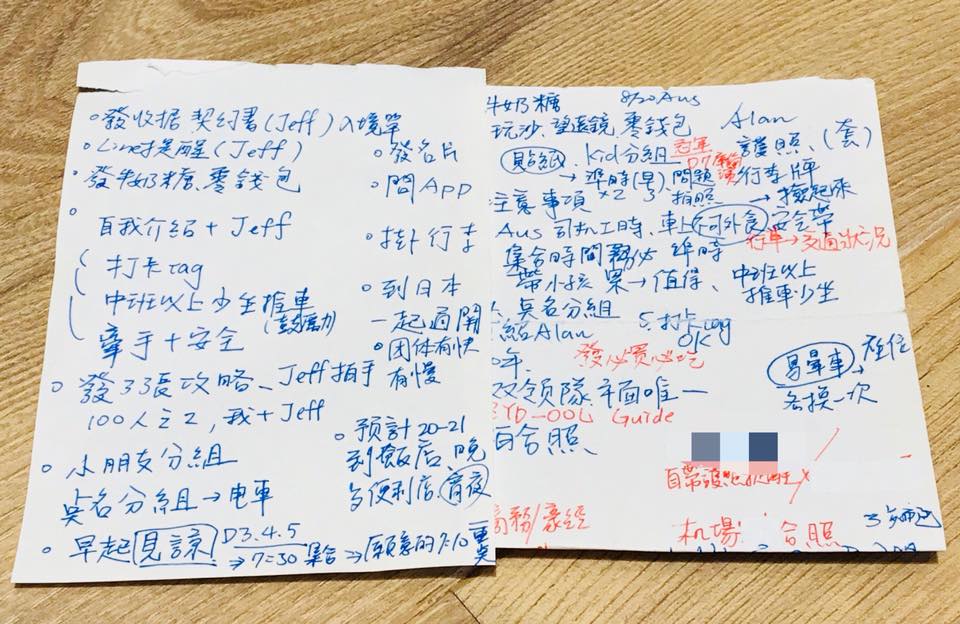 發收据 契約書(Jeff) 入境單
Line提醒(Jeff)
發牛奶糖、零錢包
自我介紹+Jeff
打卡tag
中班以上少坐推車
牽手+安全
發33張攻略、Jeff拍手
100人之2,我+Jeff
小朋友分組
吳名分組→电車
早起見諒 D3.4.5
→7:30集合→願意的7:10
發名片
問App
掛行李
到日本
一起過關
团体有快
有慢
預計20-21
到飯店、晚
多便利店、宵夜
牛奶糖 8/20 Aus
玩沙、望遠鏡 零錢包 Alan
貼紙、Kid分組 冠軍 護照、(套)
→準時(早)、問題 行李牌
x2 拍照
注意事項
Aus司机工時、車上 外食 安全帶
行車→交通狀況
集合時間 務必 準時
帶小孩 累→值得、中班以上
推車少坐
吳名分組
紹Alan 5.打卡tag
OK
發必買必吃
双領隊 唯一
Guide
百合照
易暈車→座位
各換一次
商務/豪經
机場 合照